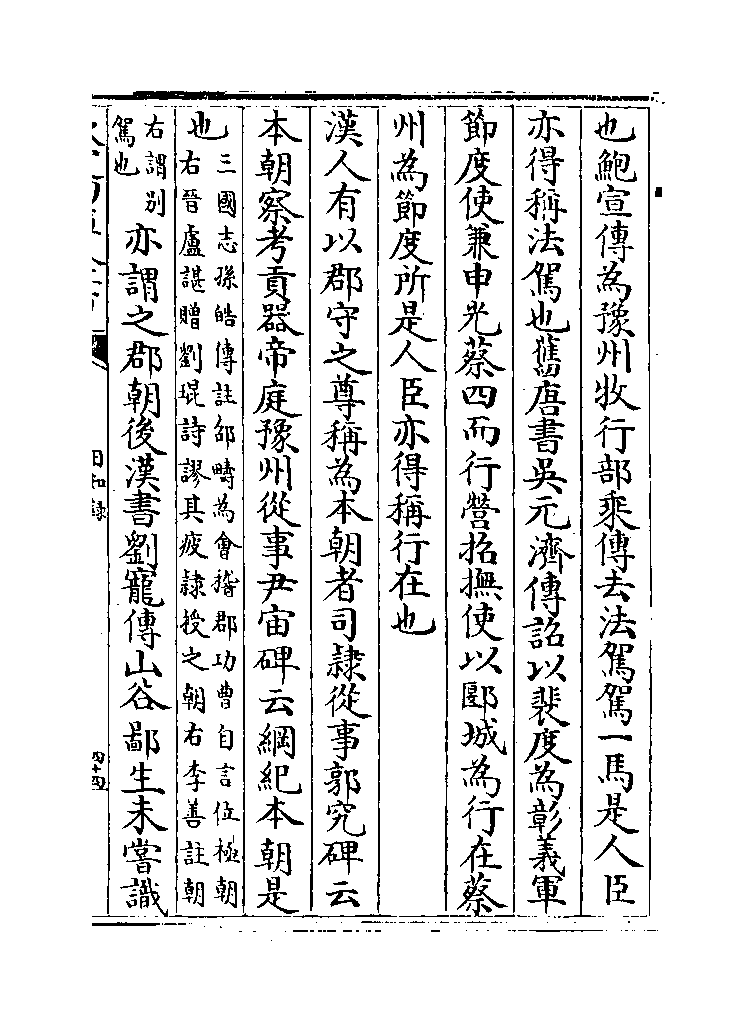 也鮑宣傳為豫州牧行部乘傳去法駕駕一馬是人臣
亦得稱法駕也舊唐書吳元濟傳詔以裴度為彰義軍
節度使兼申光蔡四面行營招撫使以郾城為行在蔡
州為節度所是人臣亦得稱行在也
漢人有以郡守之尊稱為本朝者司隷從事郭究碑云
本朝察考貢器帝庭豫州從事尹宙碑云綱紀本朝是
也
三國志孫皓傳註邵疇為會稽郡功曹自言位極朝
右晉盧諶贈劉琨詩謬其疲隷授之朝右李善註朝
右謂別
駕也
亦謂之郡朝後漢書劉寵傳山谷鄙生未嘗識
日知錄
四十四